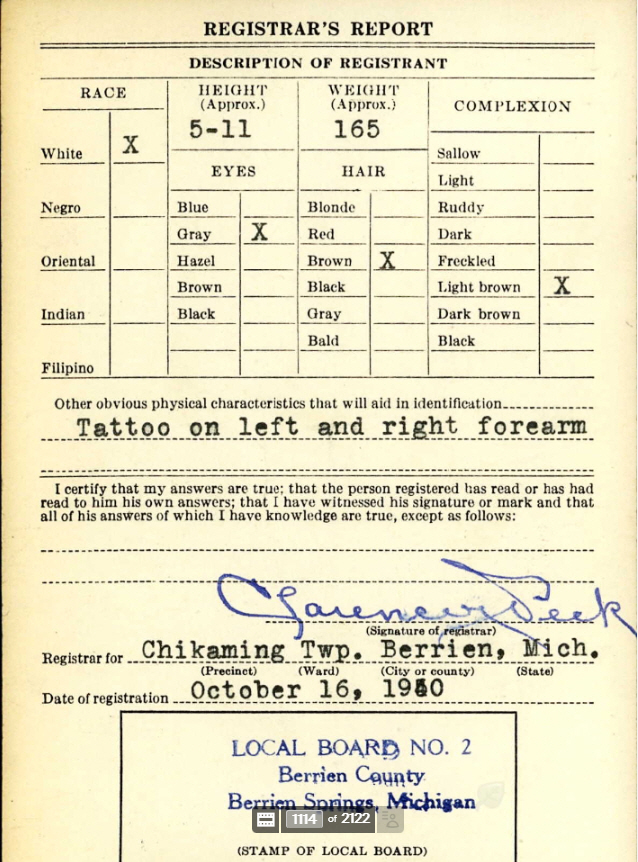 REGISTRAR'S REPORT
DESCRIPTION OF REGISTRANT
RACE
HEIGHT
(Approx.)
WEIGHT
(Approx.)
COMPLEXION
5-11
165
White X
EYES
HAIR
Sallow
Light
Negro
Blue
Blonde
Ruddy
Gray X
Red
Dark
Oriental
Hazel
Brown X
Freckled
Brown
Black
Light brown X
Indian
Black
Gray
Dark brown
Bald
Black
Filipino
Other obvious physical characteristics that will aid in identification
Tattoo on left and right forearm
I certify that my answers are true; that the person registered has read or has had
read to him his own answers; that I have witnessed his signature or mark and that
all of his answers of which I have knowledge are true, except as follows:
Peek
(Signature of registrar)
Registrar for Chikaming Twp. Berrien, Mich.
(Precinct) (Ward) (City or county) (State)
Date of registration October 16, 1940
LOCAL BOARD NO. 2
Berrien County
Berrien Springs, Michigan
1114 of 2122
(STAMP OF LOCAL BOARD)